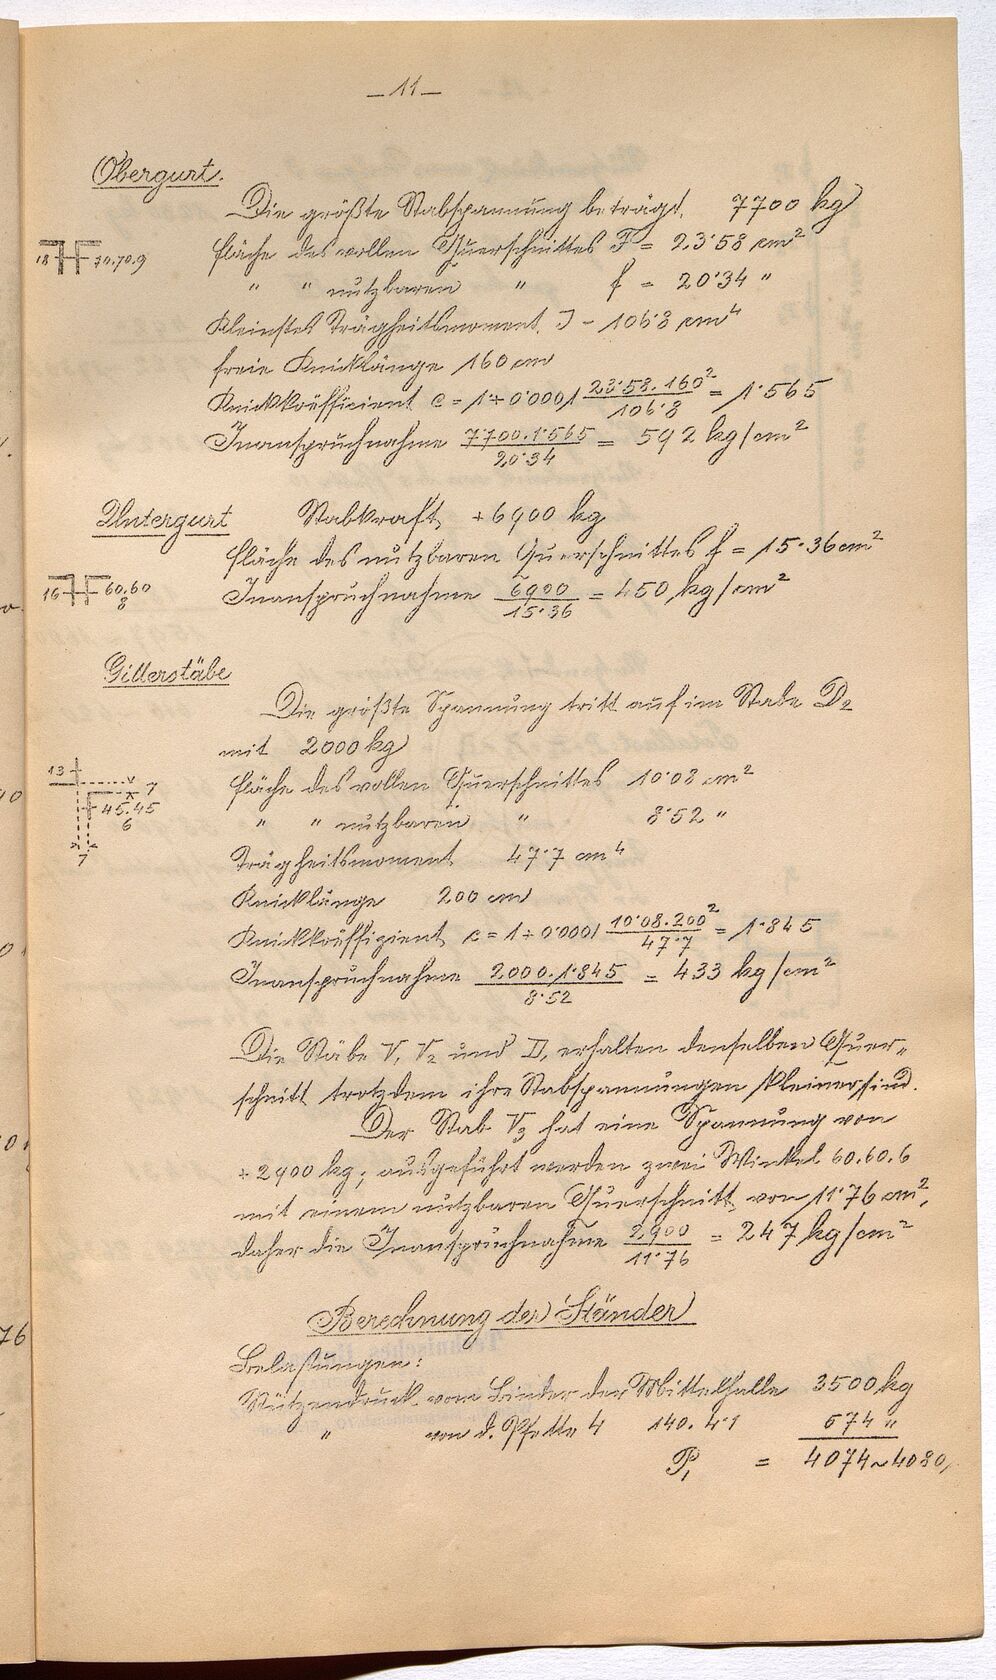 – 11 –
Obergurt.
Die größte Stabspannung beträgt 7700 kg
18 70.70.9
Fläche des vollen Querschnittes F = 23·58 cm²
" " nutzbaren " f = 20·34 "
Kleinstes Trägheitsmoment J = 106·8 cm⁴
freie Knicklänge 160 cm
Knickkoëfficient c = 1 + 0·0001 23·58.160² / 106·8 = 1·565
Inanspruchnahme 7700.1·565 / 20·34 = 592 kg/cm²
Untergurt Stabkraft +6900 kg
Fläche des nutzbaren Querschnittes f = 15·36 cm²
16 60.60
8
Inanspruchnahme 6900 / 15·36 = 450 kg/cm²
Gitterstäbe
Die größte Spannung tritt auf im Stabe D₂
mit 2000 kg
13 7
45.45
6
7
Fläche des vollen Querschnittes 10·08 cm²
" " nutzbaren " 8·52 "
Trägheitsmoment 47·7 cm⁴
Knicklänge 200 cm
Knickkoëffizient c = 1 + 0·0001 10·08.200² / 47·7 = 1·845
Inanspruchnahme 2000.1·845 / 8·52 = 433 kg/cm²
Die Stäbe V₁ V₂ und D₁ erhalten denselben Quer-
schnitt trotzdem ihre Stabspannungen kleiner sind.
Der Stab V₃ hat eine Spannung von
+ 2900 kg; ausgeführt werden zwei Winkel 60.60.6
mit einem nutzbaren Querschnitt von 11·76 cm²,
daher die Inanspruchnahme 2900 / 11·76 = 247 kg/cm²
Berechnung der Ständer
Belastungen:
Stützendruck vom Binder der Mittelhalle 3500 kg
" von d. Pfette 4 140.4·1 574 "
P₁ = 4074 ~ 4080,